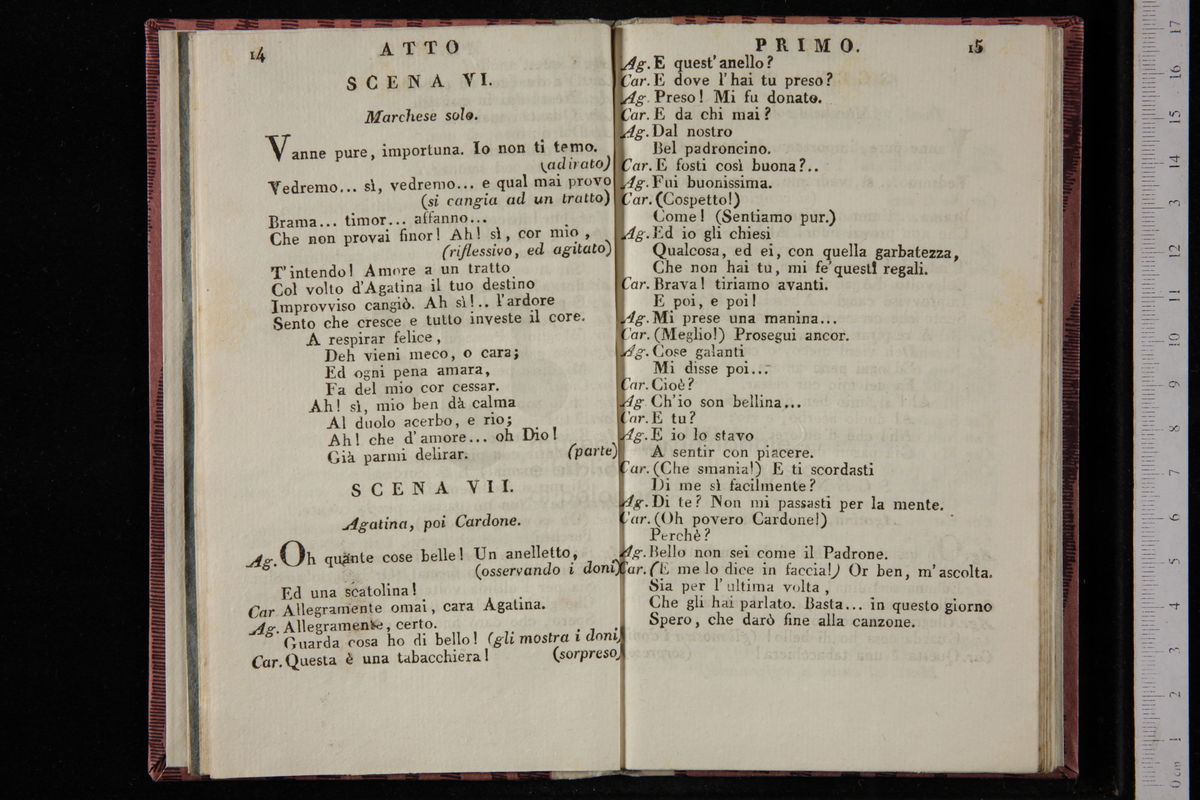 14 ATTO
SCENA VI.
Marchese solo.
Vanne pure, importuna. Io non ti temo.
(adirato)
Vedremo... sì, vedremo... e qual mai provo
(si cangia ad un tratto)
Brama... timor... affanno...
Che non provai finor! Ah! sì, cor mio,
(riflessivo, ed agitato)
T'intendo! Amore a un tratto
Col volto d'Agatina il tuo destino
Improvviso cangiò. Ah sì!.. l'ardore
Sento che cresce e tutto investe il core.
A respirar felice,
Deh vieni meco, o cara;
Ed ogni pena amara,
Fa del mio cor cessar.
Ah! sì, mio ben dà calma
Al duolo acerbo, e rio;
Ah! che d'amore... oh Dio!
Già parmi delirar. (parte)
SCENA VII.
Agatina, poi Cardone.
Ag. Oh quante cose belle! Un anelletto,
(osservando i doni)
Ed una scatolina!
Car. Allegramente omai, cara Agatina.
Ag. Allegramente, certo.
Guarda cosa ho di bello! (gli mostra i doni)
Car. Questa è una tabacchiera! (sorpreso)
PRIMO. 15
Ag. E quest'anello?
Car. E dove l'hai tu preso?
Ag. Preso! Mi fu donato.
Car. E da chi mai?
Ag. Dal nostro
Bel padroncino.
Car. E fosti così buona?..
Ag. Fui buonissima.
Car. (Cospetto!)
Come! (Sentiamo pur.)
Ag. Ed io gli chiesi
Qualcosa, ed ei, con quella garbatezza,
Che non hai tu, mi fe'questi regali.
Car. Brava! tiriamo avanti.
E poi, e poi!
Ag. Mi prese una manina...
Car. (Meglio!) Prosegui ancor.
Ag. Cose galanti
Mi disse poi...
Car. Cioè?
Ag. Ch'io son bellina...
Car. E tu?
Ag. E io lo stavo
A sentir con piacere.
Car. (Che smania!) E ti scordasti
Di me sì facilmente?
Ag. Di te? Non mi passasti per la mente.
Car. (Oh povero Cardone!)
Perchè?
Ag. Bello non sei come il Padrone.
Car. (E me lo dice in faccia!) Or ben, m'ascolta.
Sia per l'ultima volta,
Che gli hai parlato. Basta... in questo giorno
Spero, che darò fine alla canzone.
0 cm 1 2 3 4 5 6 7 8 9 10 11 12 13 14 15 16 17